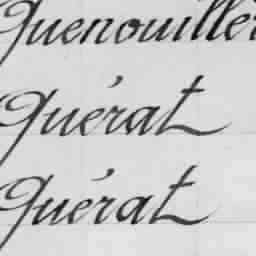 Quenouille
Quérat
Quérat